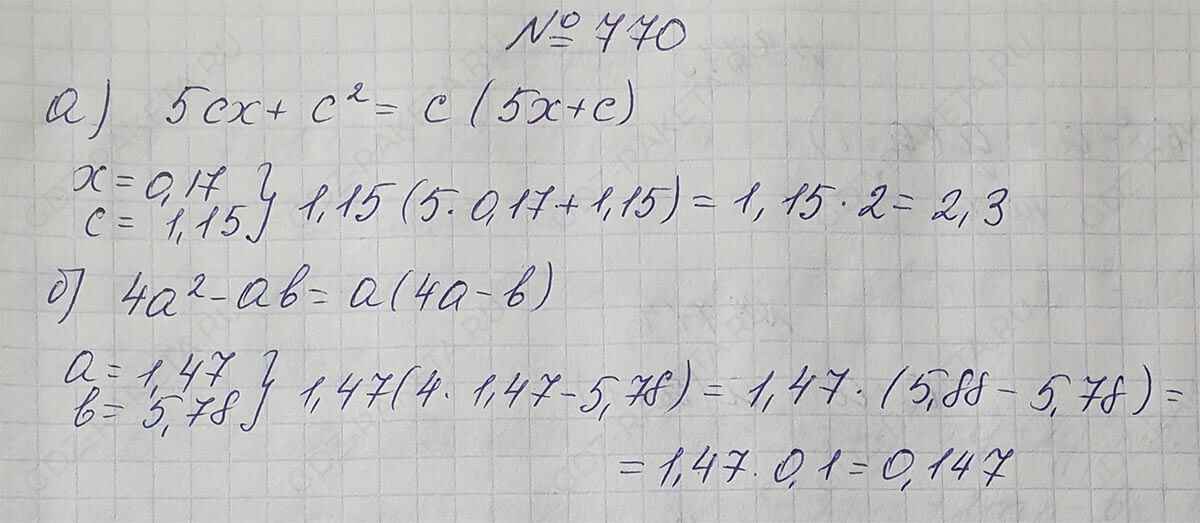 № 770
а) 5cx + c² = c (5x + c)
x = 0,17
c = 1,15 } 1,15 (5 · 0,17 + 1,15) = 1,15 · 2 = 2,3
б) 4a² - ab = a (4a - b)
a = 1,47
b = 5,78 } 1,47 (4 · 1,47 - 5,78) = 1,47 · (5,88 - 5,78) =
= 1,47 · 0,1 = 0,147